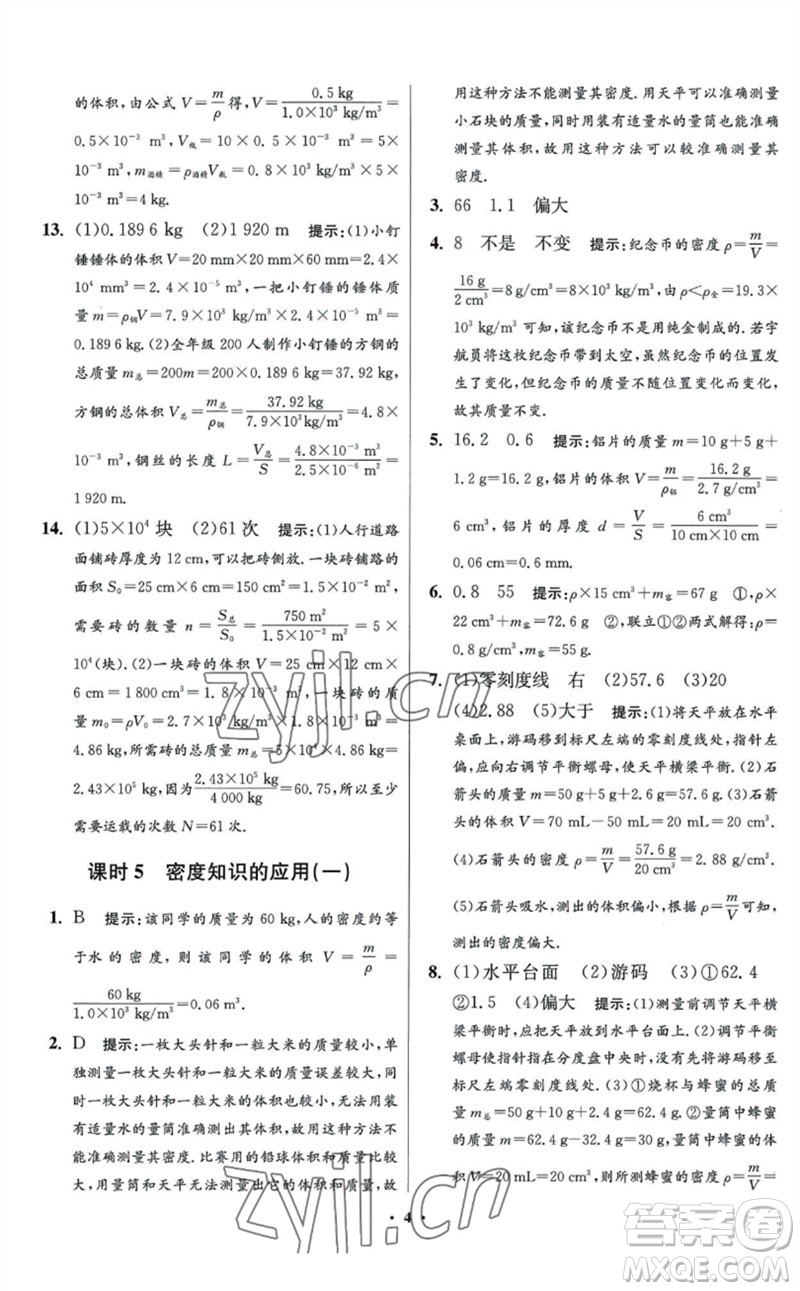 的体积，由公式 V=m/ρ得，V=0.5 kg/1.0×10³ kg/m³=
0.5×10⁻³ m³，V瓶=10×0.5×10⁻³ m³=5×
10⁻³ m³，m酒精=ρ酒精V瓶=0.8×10³ kg/m³×5×
10⁻³ m³=4 kg.
13. (1)0.189 6 kg (2)1 920 m 提示：(1)小钉
锤锤体的体积V=20 mm×20 mm×60 mm=2.4×
10⁴ mm³=2.4×10⁻⁵ m³，一把小钉锤的锤体质
量 m=ρ钢V=7.9×10³ kg/m³×2.4×10⁻⁵ m³=
0.189 6 kg. (2)全年级 200 人制作小钉锤的方钢的
总质量 m总=200m=200×0.189 6 kg=37.92 kg，
方钢的总体积 V总=m总/ρ钢=37.92 kg/7.9×10³ kg/m³=4.8×
10⁻³ m³，钢丝的长度 L=V总/S=4.8×10⁻³ m³/2.5×10⁻⁶ m²=
1 920 m.
14. (1)5×10⁴ 块 (2)61 次 提示：(1)人行道路
面铺砖厚度为 12 cm，可以把砖侧放. 一块砖铺路的
面积 S₀=25 cm×6 cm=150 cm²=1.5×10⁻² m²，
需要砖的数量 n=S总/S₀=750 m²/1.5×10⁻² m²=5×
10⁴(块). (2)一块砖的体积 V=25 cm×12 cm×
6 cm=1 800 cm³=1.8×10⁻³ m³，一块砖的质
量 m₀=ρV₀=2.7×10³ kg/m³×1.8×10⁻³ m³=
4.86 kg，所需砖的总质量 m总=5×10⁴×4.86 kg=
2.43×10⁵ kg，因为2.43×10⁵ kg/4 000 kg=60.75，所以至少
需要运载的次数 N=61 次.
课时 5 密度知识的应用(一)
1. B 提示：该同学的质量为 60 kg，人的密度约等
于水的密度，则该同学的体积 V=m/ρ=
60 kg/1.0×10³ kg/m³=0.06 m³.
2. D 提示：一枚大头针和一粒大米的质量较小，单
独测量一枚大头针和一粒大米的质量误差较大，同
时一枚大头针和一粒大米的体积也较小，无法用装
有适量水的量筒准确测出其体积，故用这种方法不
能准确测量其密度. 比赛用的铅球体积和质量均较
大，用量筒和天平无法测量出它的体积和质量，故
用这种方法不能测量其密度. 用天平可以准确测量
小石块的质量，同时用装有适量水的量筒也能准确
测量其体积，故用这种方法可以较准确测量其
密度.
3. 66 1.1 偏大
4. 8 不是 不变 提示：纪念币的密度 ρ=m/V=
16 g/2 cm³=8 g/cm³=8×10³ kg/m³，由 ρ<ρ金=19.3×
10³ kg/m³ 可知，该纪念币不是用纯金制成的. 若宇
航员将这枚纪念币带到太空，虽然纪念币的位置发
生了变化，但纪念币的质量不随位置的变化而变化，
故其质量不变.
5. 16.2 0.6 提示：铝片的质量 m=10 g+5 g+
1.2 g=16.2 g，铝片的体积 V=m/ρ铝=16.2 g/2.7 g/cm³=
6 cm³，铝片的厚度 d=V/S=6 cm³/10 cm×10 cm=
0.06 cm=0.6 mm.
6. 0.8 55 提示：ρ×15 cm³+m容=67 g ①，ρ×
22 cm³+m容=72.6 g ②，联立①②两式解得：ρ=
0.8 g/cm³，m容=55 g.
7. (1)零刻度线 右 (2)57.6 (3)20
(4)2.88 (5)大于 提示：(1)将天平放在水平
桌面上，游码移到标尺左端的零刻度线处，指针左
偏，应向右调节平衡螺母，使天平横梁平衡. (2)石
箭头的质量 m=50 g+5 g+2.6 g=57.6 g. (3)石箭
头的体积 V=70 mL−50 mL=20 mL=20 cm³.
(4)石箭头的密度 ρ=m/V=57.6 g/20 cm³=2.88 g/cm³.
(5)石箭头吸水，测出的体积偏小，根据 ρ=m/V可知，
测出的密度偏大.
8. (1)水平台面 (2)游码 (3)①62.4
②1.5 (4)偏大 提示：(1)测量前调节天平横
梁平衡时，应把天平放到水平台面上. (2)调节平衡
螺母使指针指在分度盘中央时，没有将游码移至标
尺左端的零刻度线处. (3)①烧杯与蜂蜜的总质
量为 m总=50 g+10 g+2.4 g=62.4 g；②量筒中蜂蜜
的质量为 m=62.4 g−32.4 g=30 g，量筒中蜂蜜的体
积 V=20 mL=20 cm³，则所测蜂蜜的密度 ρ=m/V=
· 4 ·
zyjl.cn
zyjl.cn
答案卷
MXQE.COM